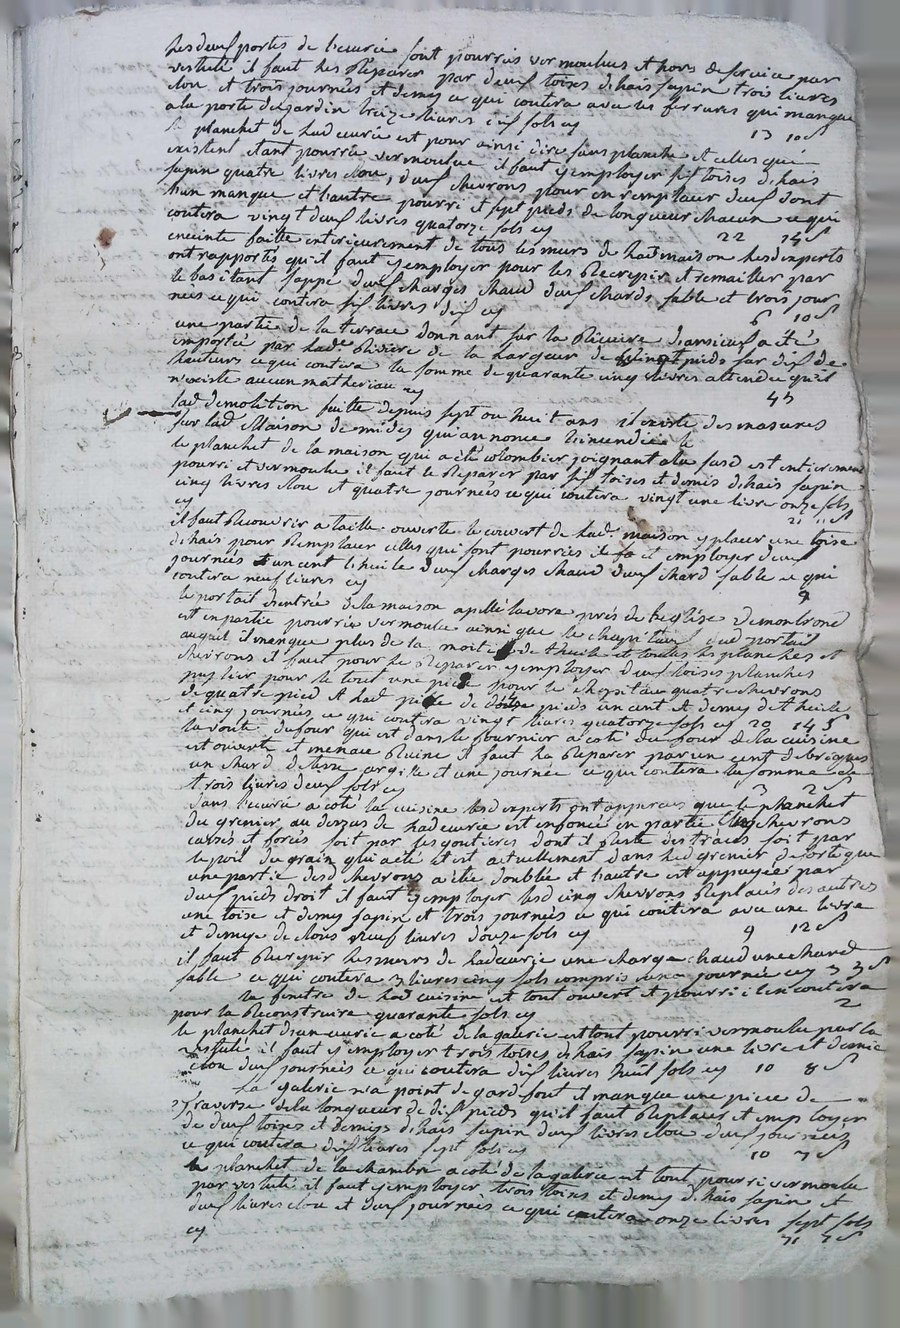 les deux portes de l'ecurie sont pourries vermoulues et hors de service par
vestuté il faut les Reparer par deux toises d'hais sapin trois livres
clou et trois journées et demy ce qui coutera avec les ferrures qui manque
a la porte du jardin treize livres dix sols cy
13 10 s
le planchet de lad ecurie est pour ainsi dire sans planche et celles qui
existent etant pourrie vermoulue il faut y employer six toises d'hais
sapin quatre livres clou, deux chevrons pour en remplacer deux dont
l'un manque et l'autre pourri et sept pieds de longueur chacun ce qui
coutera vingt deux livres quatorze sols cy
22 14 s
enceinte faitte interieurement de tous les murs de lad maison lesd experts
ont rapportés qu'il faut y employer pour les Recrepir et remailler par
le bas etant sappé deux charges chaud deux chards sable et trois jour
nées ce qui coutera six livres dix cy
6 10 s
une partie de la terrace donnant sur la Riviere a eté
emportée par lade Riviere de la largeur de vingt pieds sur dix de
hauteurs ce qui coutera la somme de quarante cinq livres attendu qu'il
n'existe aucun matheriau cy
45
lad demolition faitte depuis sept ou huit ans il existe des masures
sur lad Maison de midy qui annonce l'incendie
le planchet de la maison qui a été colombier joignant a la susd est entierement
pourri et vermoulue il faut le Reparer par six toises et demis d'hais sapin
cinq livres clou et quatre journées ce qui coutera vingt une livre onze sols
cy
21 11 s
il faut Recouvrir a taille ouverte le couvert de lad. maison y placer une toise
d'hais pour Remplacer celles qui sont pourries et employer deux
journées un cent thuile deux charges chaud deux chard sable ce qui
coutera neuf livres cy
9
le portail d'entrée de la maison apellé lavora près de l'eglise de montrond
est en partie pourrie vermoulue ainsi que le chapiteau dud portail
auquel il manque plus de la moitié de thuile et toutes les planches et
chevrons il faut pour le Reparer y employer deux toises planches
pour le tout une piece pour le chapiteau quatre chevrons
de quatre pied et lad piece de douze pieds un cent et demy de thuile
et cinq journées ce qui coutera vingt livres quatorze sols cy 20 14 s
la voute du four qui est dans le fournier a coté du four de la cuisine
est ouverte et menace Ruine il faut la Reparer par un cent de briques
un chard de terre argille et une journée ce qui coutera la somme de
trois livres deux sols cy
3 2 s
dans l'ecurie a coté la cuisine lesd experts ont apperçus que le planchet
du grenier au dessus de lad ecurie est enfoncé en partie cinq chevrons
cassés et forcés soit par les goutieres dont il Reste des traces soit par
le poid du grain qui a eté et est actuellement dans led grenier de sorte que
une partie desd chevrons a été doublée et l'autre est appuyée par
deux pieds droit il faut y employer lesd cinq chevrons Replacés des autres
une toise et demy sapin et trois journées ce qui coutera avec une livre
et demye de clous neuf livres douze sols cy
9 12 s
il faut Recrepir les murs de lad ecurie une charge chaud une chard
sable ce qui coutera 3 livres cinq sols compris une journée cy 3 5 s
la fenetre de lad cuisine est tout ouvert et pourri il en coutera
pour la Reconstruire quarante sols cy
2
le planchet d'une ecurie a coté de la galerie est tout pourri vermoulu par la
vestuté il faut y employer trois toises d'hais sapin une livre et demie
clou deux journées ce qui coutera dix livres huit sols cy 10 8 s
La galerie n'a point de gard fout il manque une piece de
traverse de la longueur de dix pieds qu'il faut Replacer et employer
de deux toises et demies d'hais sapin deux livres clou deux journées
ce qui coutera dix livres sept sols cy
10 7 s
le planchet de la chambre a coté de la galerie est tout pourri vermoulu
par vestuté il faut y employer trois toises et demy d'hais sapin et
deux livres clou et deux journées ce qui coutera onze livres sept sols
cy
11 7 s